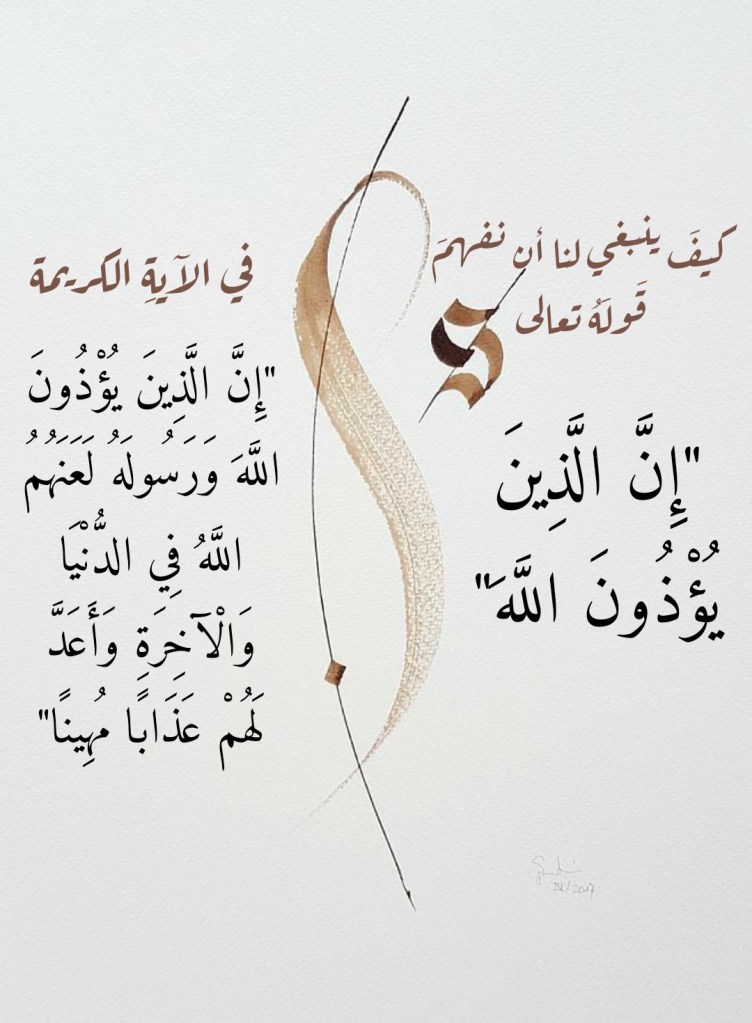 كيفَ ينبغي لنا أن نفهمَ
قَولَهُ تعالى
"إِنَّ الَّذِينَ
يُؤْذُونَ اللَّهَ"
في الآيةِ الكريمة
"إِنَّ الَّذِينَ يُؤْذُونَ
اللَّهَ وَرَسُولَهُ لَعَنَهُمُ
اللَّهُ فِي الدُّنْيَا
وَالْآخِرَةِ وَأَعَدَّ
لَهُمْ عَذَابًا مُهِينًا"
S